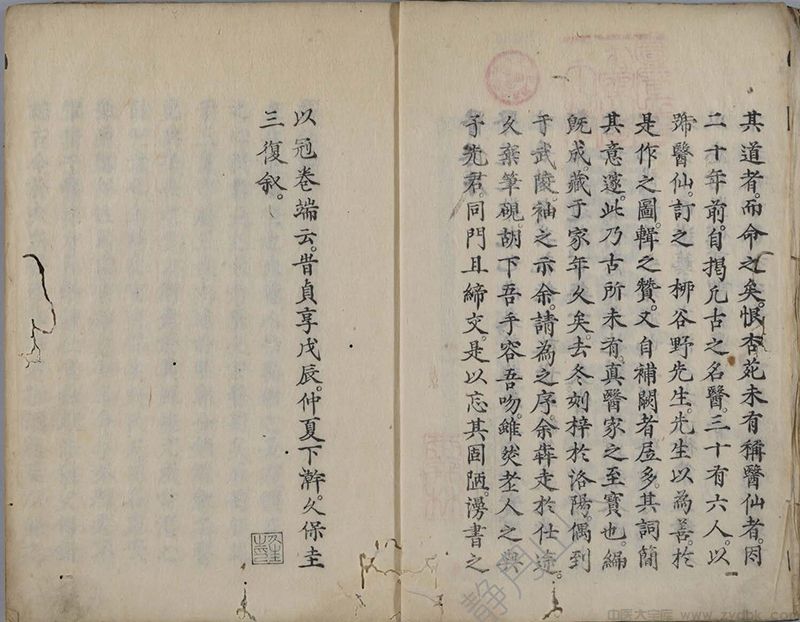 其道者。而命之矣。恨杏苑未有稱醫仙者。因
二十年前。自揭亢古之名醫。三十有六人。以
號醫仙。訂之柳谷野先生。先生以為善。於
是作之圖。輯之贊。又自補闕者居多。其詞簡
其意邃。此乃古所未有。真醫家之至寶也。編
既成藏于家年久矣。去冬刻梓於洛陽。偶到
于武陵。袖之示余。請為之序。余犇走於仕途。
久棄筆硯。胡下吾手容吾吻。雖然老人之與
于先君。同門且締交。是以忘其固陋。謾書之
以冠卷端云。昔貞享戊辰。仲夏下澣。久保圭
三復叙。
中医大宝库 www.zydbk.com